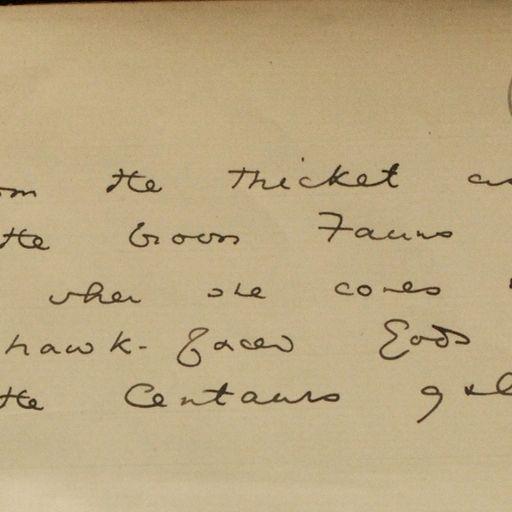 om the thicket
the brown Fauns
when she comes
hawk-faced Gods
the Centaurs gal